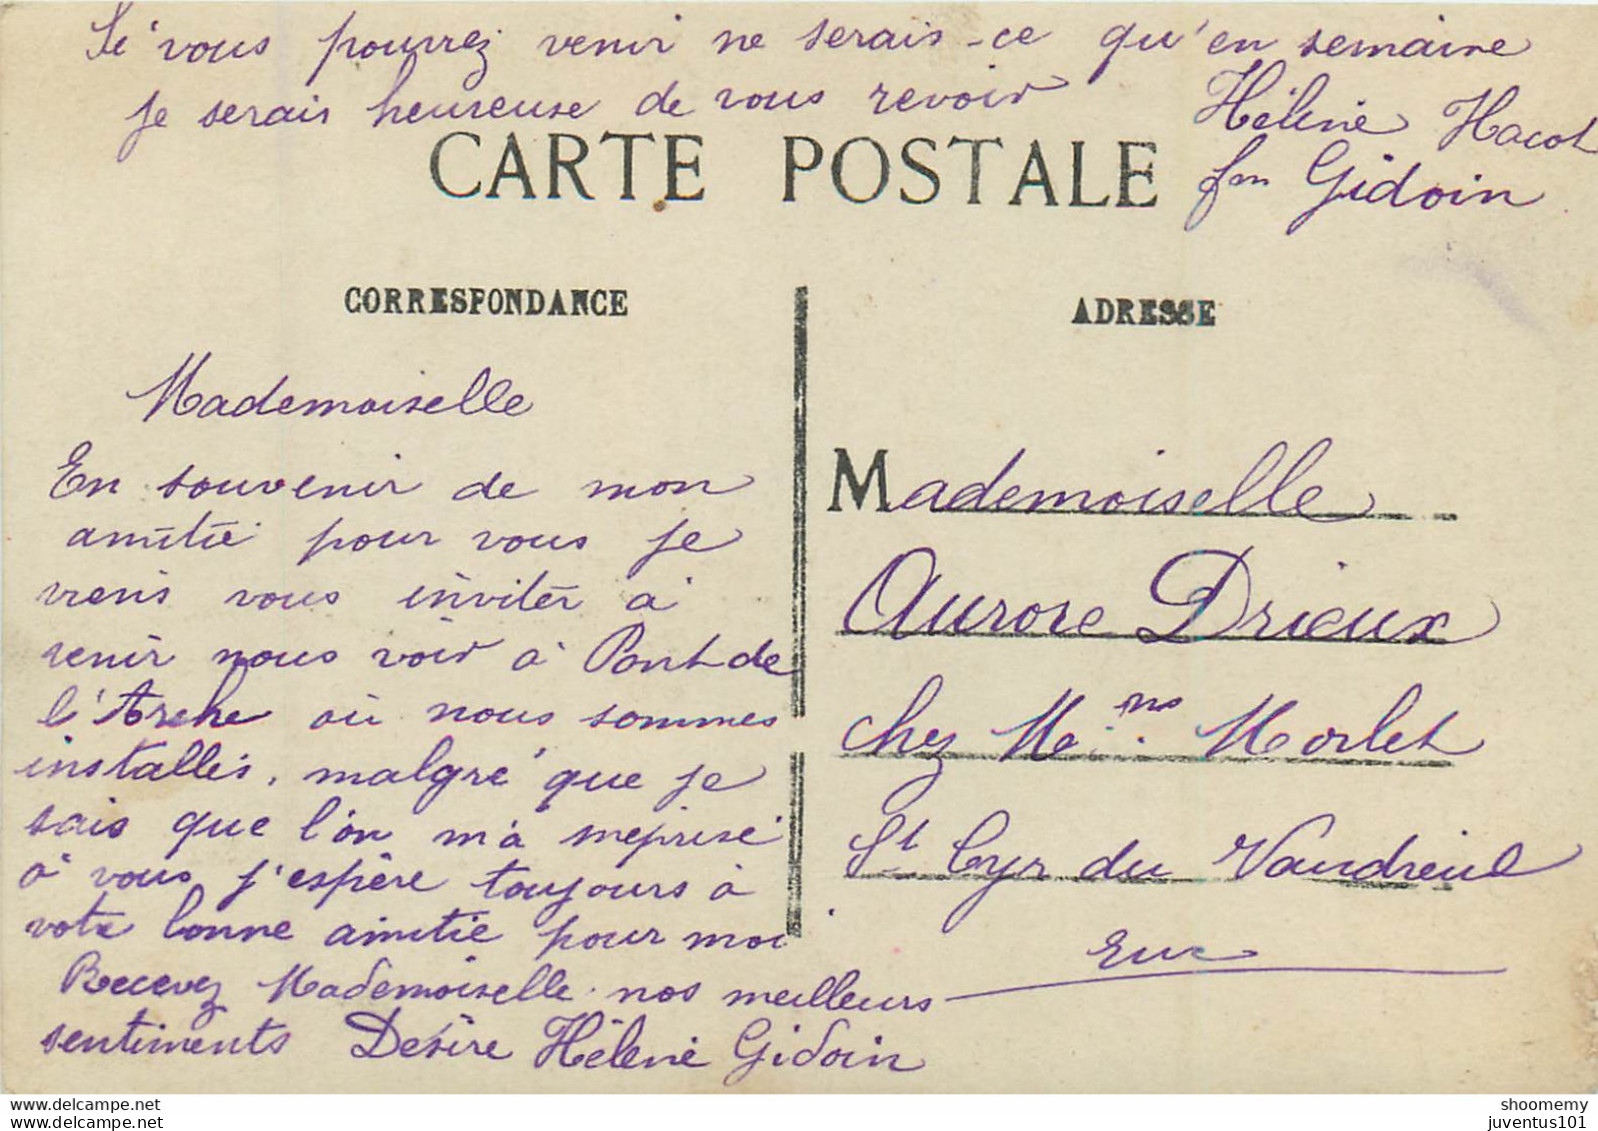 Si vous pourrez venir ne serais-ce qu'en semaine
je serais heureuse de vous revoir
Hélène Hacot
fem Gidoin
CARTE POSTALE
CORRESPONDANCE
Mademoiselle
En souvenir de mon
amitié pour vous je
viens vous inviter à
venir nous voir à Pont de
l'Arche où nous sommes
installés, malgré que je
sais que l'on m'a méprisé
à vous j'espère toujours à
votre bonne amitié pour moi
Recevez Mademoiselle nos meilleurs
sentiments Désire Hélène Gidoin
ADRESSE
Mademoiselle
Aurore Drieux
chez Me Morlet
St Cyr du Vaudreuil
Eure
shoomemy
juventus101
www.delcampe.net
juventus101